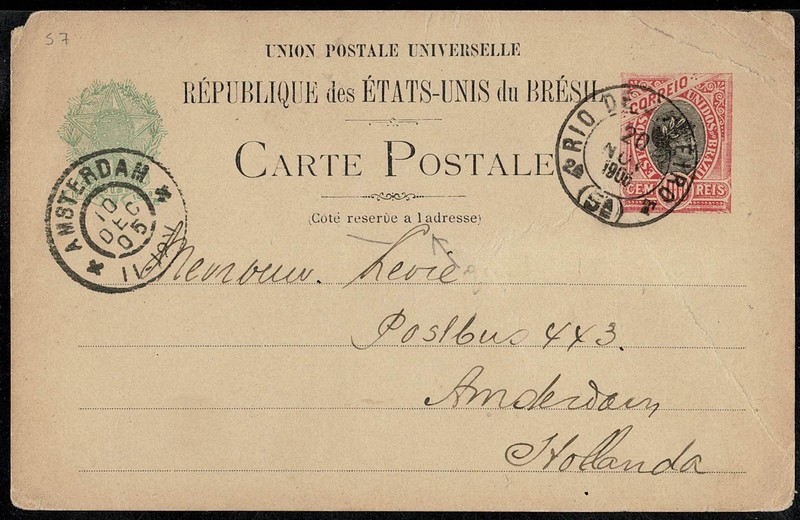 57
UNION POSTALE UNIVERSELLE
RÉPUBLIQUE des ÉTATS-UNIS du BRÉSIL
CARTE POSTALE
(Côté reservè a l'adresse)
CORREIO
ESTADOS UNIDOS BRAZIL
CEM REIS
RIO DE JANEIRO
20
NOV
5ª
AMSTERDAM
10
DEC
05
11-12V
Mevrouw. Levie
Postbus 443.
Amsterdam
Hollanda